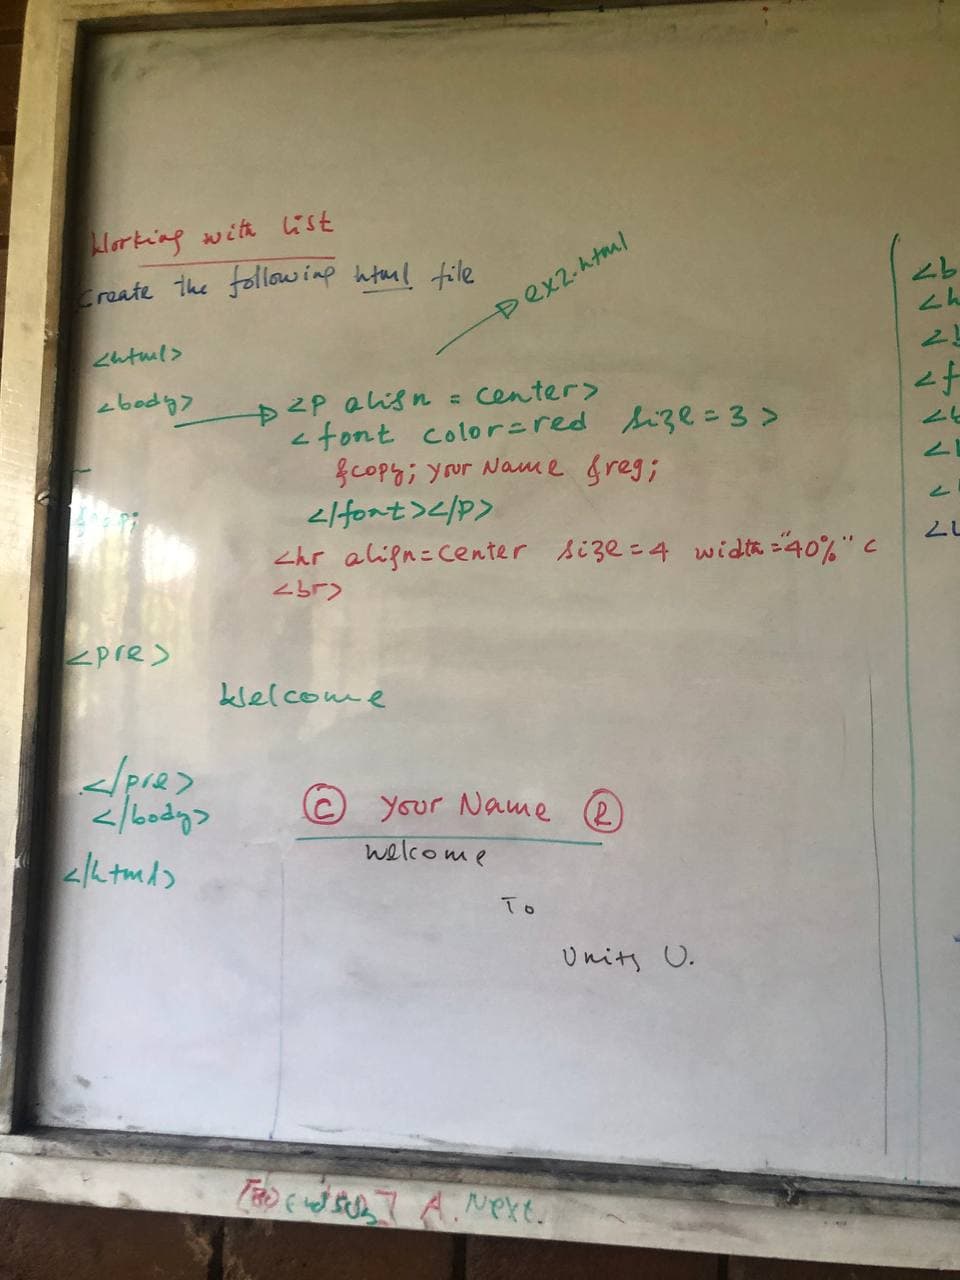 Working with list
Create the following html file
ex2.html
<html>
<body>
<p align = center>
<font color=red size=3>
&copy; your Name &reg;
</font></p>
<hr align=center size=4 width="40%" c
<br>
<pre>
Welcome
</pre>
</body>
</html>
© your Name ®
Welcome
To
Unity U.
<b
<h
<f
<l
A. Next.